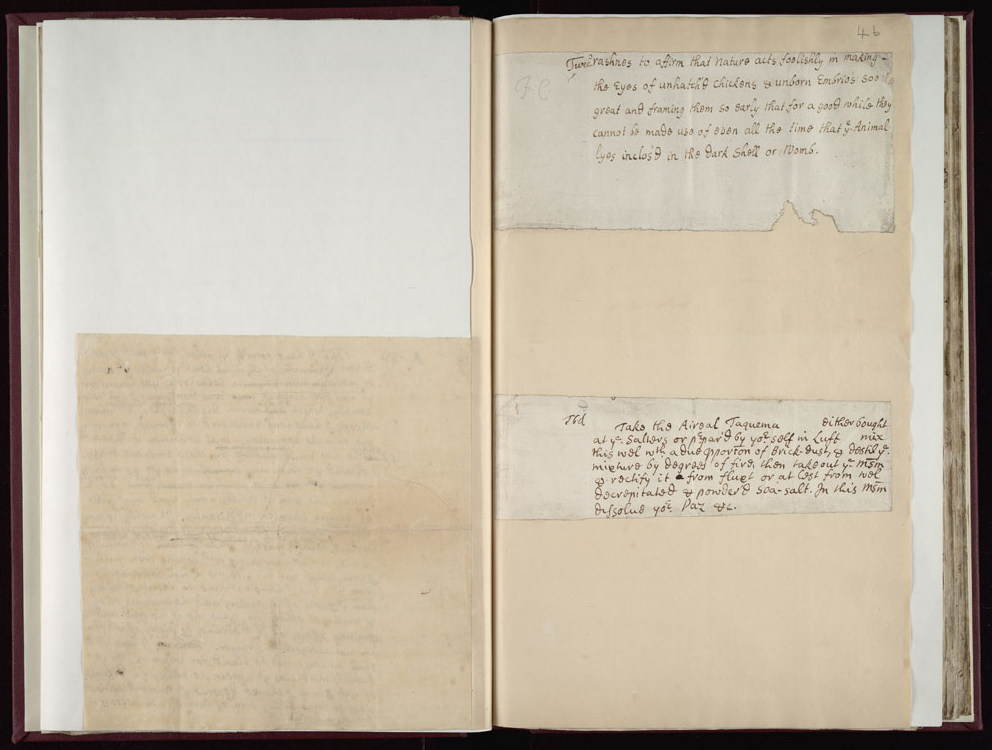 46
Twe rashnes to affirm that Nature acts foolishly in making
F. C.
the Eyes of unhatch'd chickens & unborn Embrio's soe
great and framing them so early that for a good while they
cannot be made use of even all the time that yᵉ Animal
lyes inclos'd in the dark Shell or Womb.
Take the Aireal Taquema either bought
at yᵉ Salters or p̄par'd by yoʳ self in Luft mix
this wel wth a due p̄portion of Brick-dust, & destil yᵉ
mixture by degrees of fire, then take out yᵉ msm
& rectify it from fluxt or at lest from wel
decrepitated & powder'd Sea-salt. In this msm
dissolue yoʳ Paz &c.